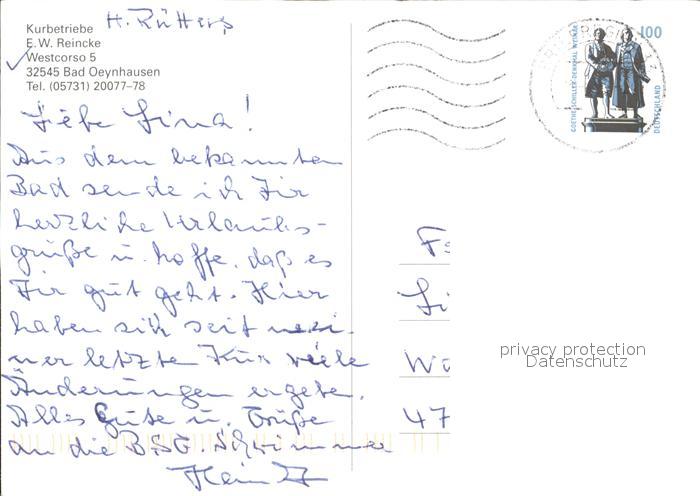 H. Rütters
Kurbetriebe
E. W. Reincke
Westcorso 5
32545 Bad Oeynhausen
Tel. (05731) 20077–78
Liebe Lina!
Aus dem bekannten
Bad sende ich Dir
herzliche Urlaubs-
grüße u. hoffe, daß es
Dir gut geht. Hier
haben sich seit mei-
ner letzte Kur viele
Änderungen ergeben.
Alles Gute u. Grüße
an die BSG. Schwimmer
Heinz
100
GOETHE-SCHILLER-DENKMAL WEIMAR
DEUTSCHLAND
Li
47
privacy protection
Datenschutz